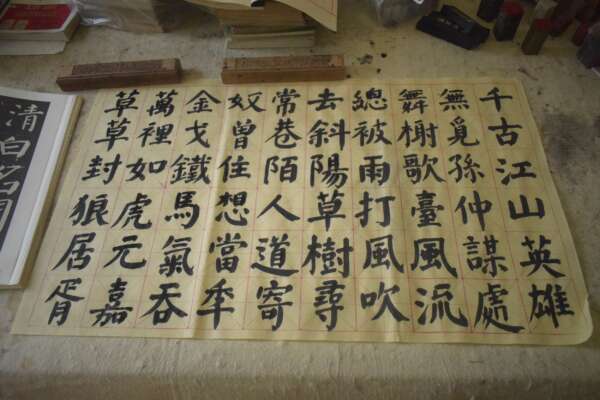 千古江山英雄
無覓孫仲謀處
舞榭歌臺風流
總被雨打風吹
去斜陽草樹尋
常巷陌人道寄
奴曾住想當秊
金戈鐵馬氣吞
萬裡如虎元嘉
草草封狼居胥
清白